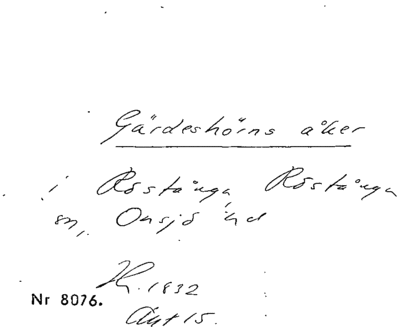 Gärdeshörns åker
i Röstånga, Röstånga
sn, Onsjö hd
H. 1832
Nr 8076.
Akt 15.